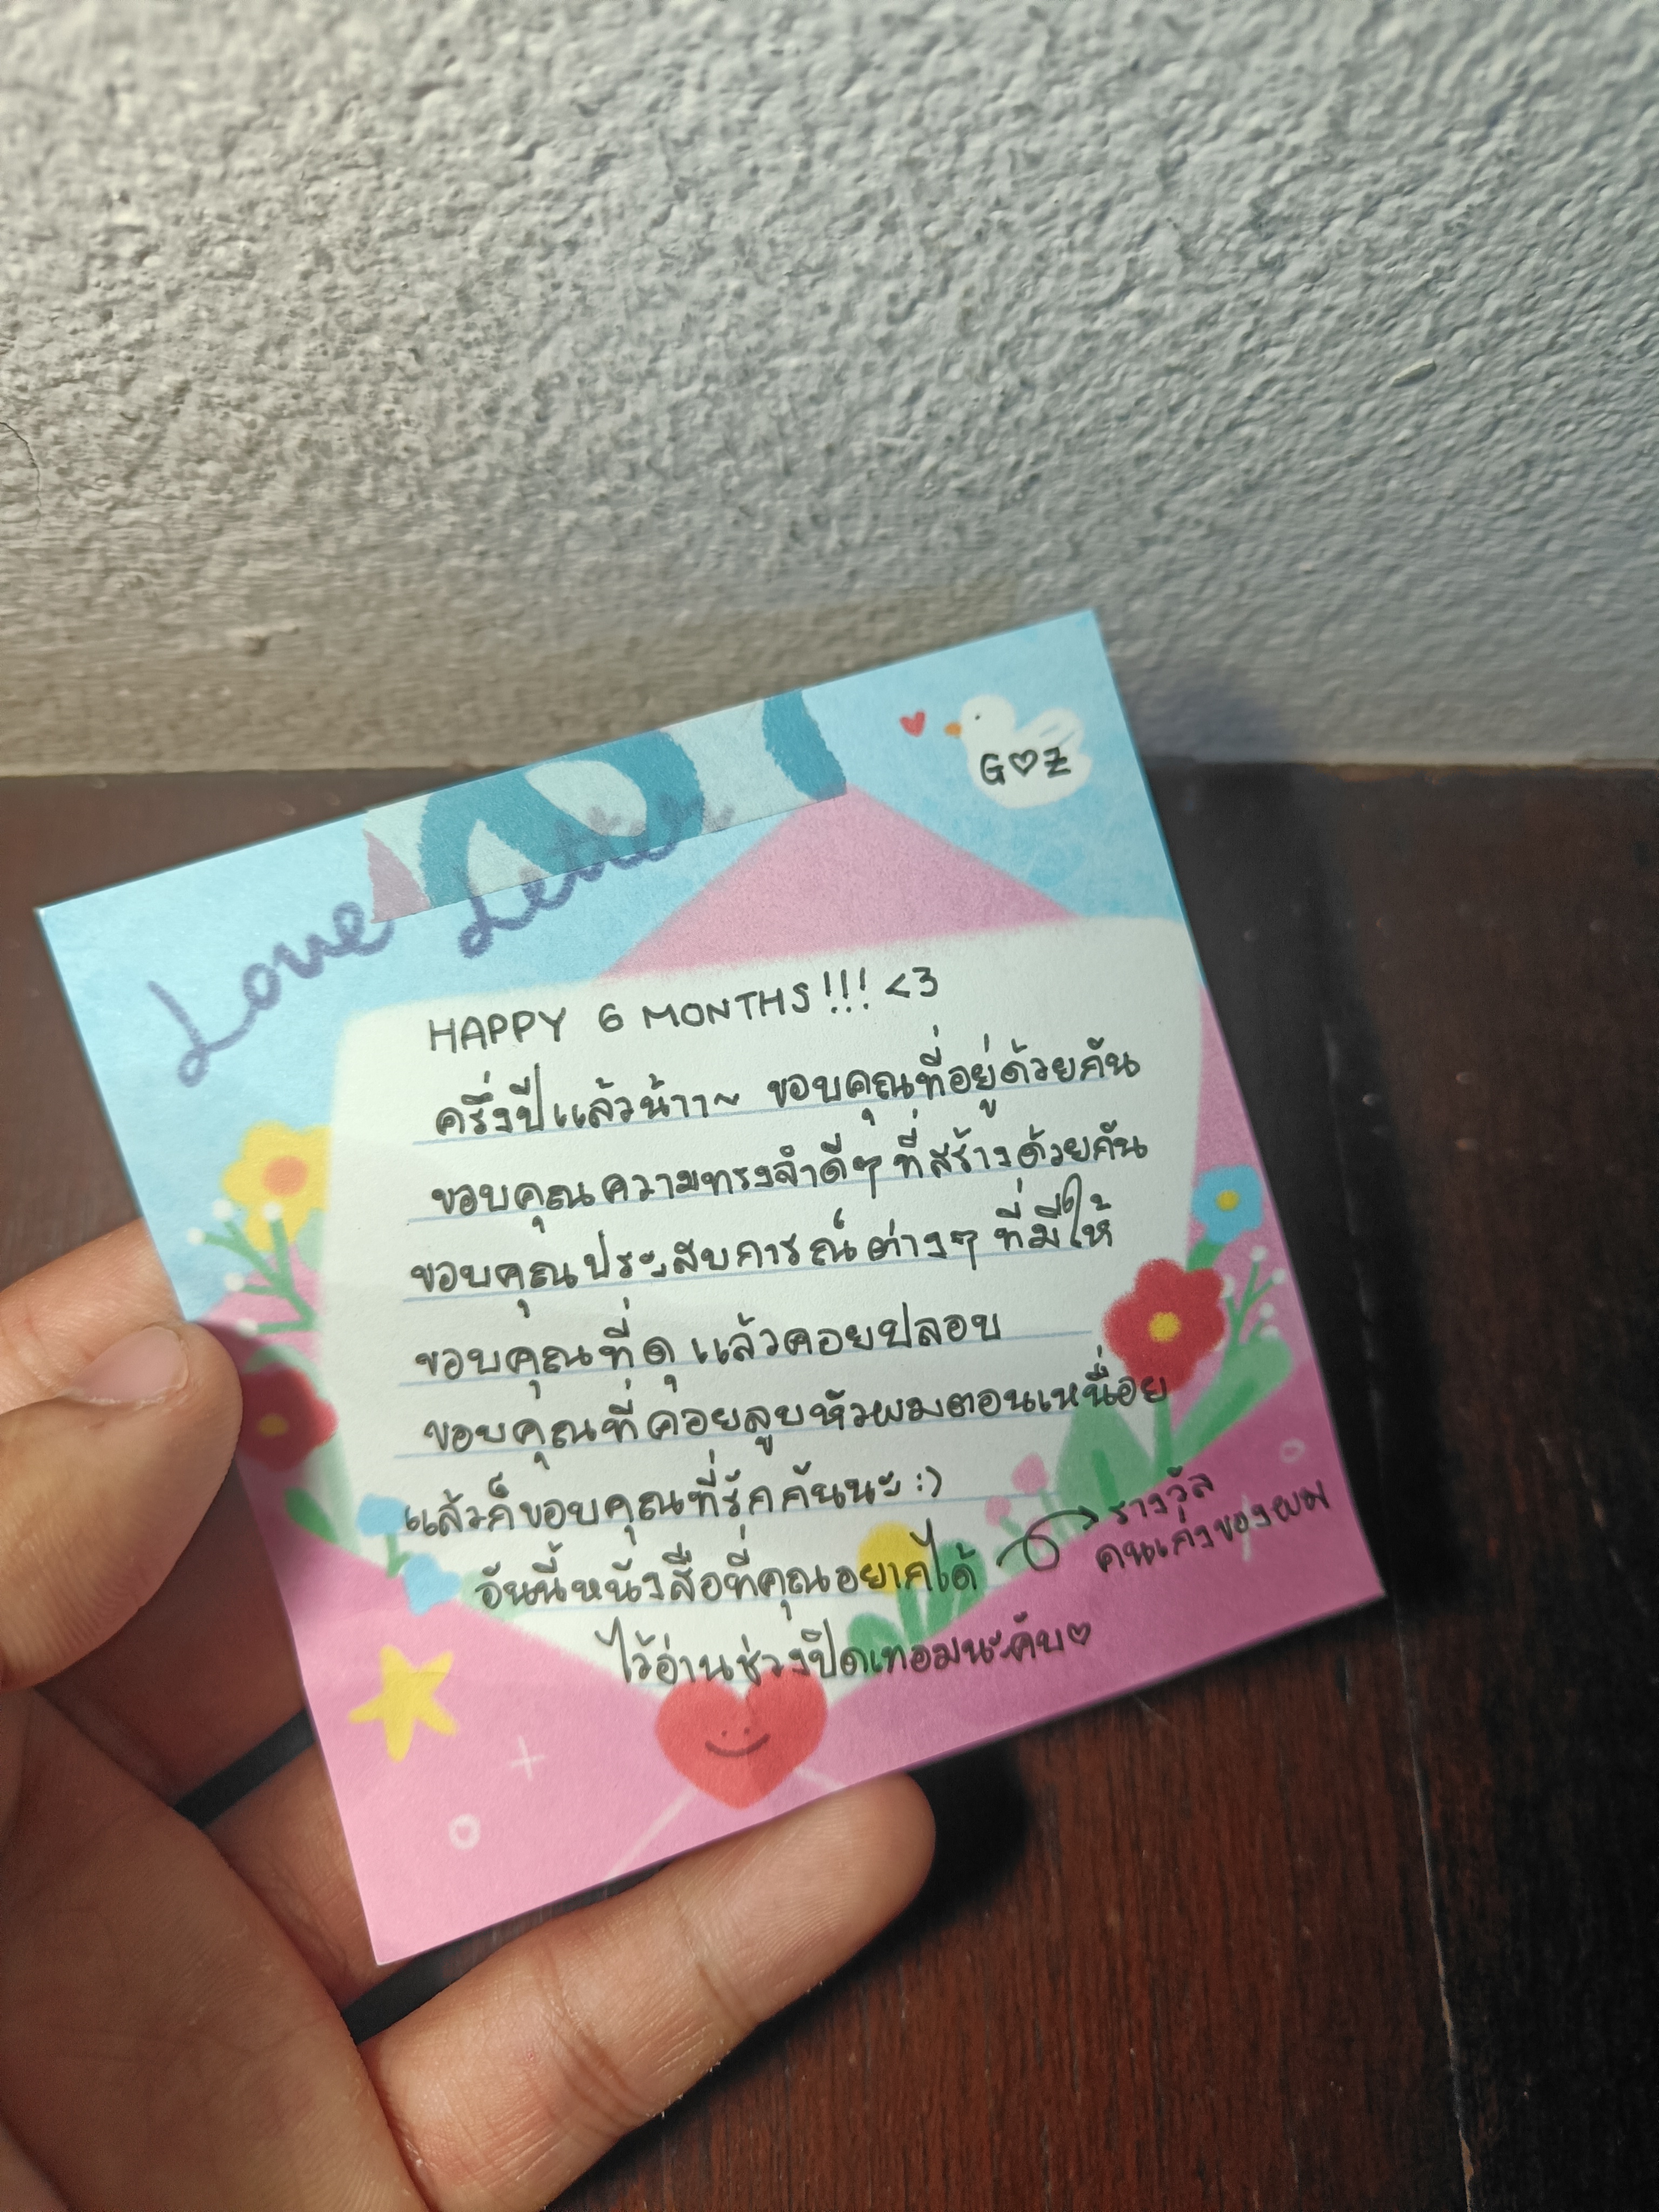 Love Letter
G♡Z
HAPPY 6 MONTHS!!! <3
ครึ่งปีแล้วน้าา~ ขอบคุณที่อยู่ด้วยกัน
ขอบคุณความทรงจำดีๆ ที่สร้างด้วยกัน
ขอบคุณประสบการณ์ต่างๆ ที่มีให้
ขอบคุณที่ดุ แล้วคอยปลอบ
ขอบคุณที่คอยลูบหัวผมตอนเหนื่อย
แล้วก็ขอบคุณที่รักกันนะ :)
อันนี้หนังสือที่คุณอยากได้
รางวัล
คนเก่งของผม
ไว้อ่านช่วงปิดเทอมนะคับ♡